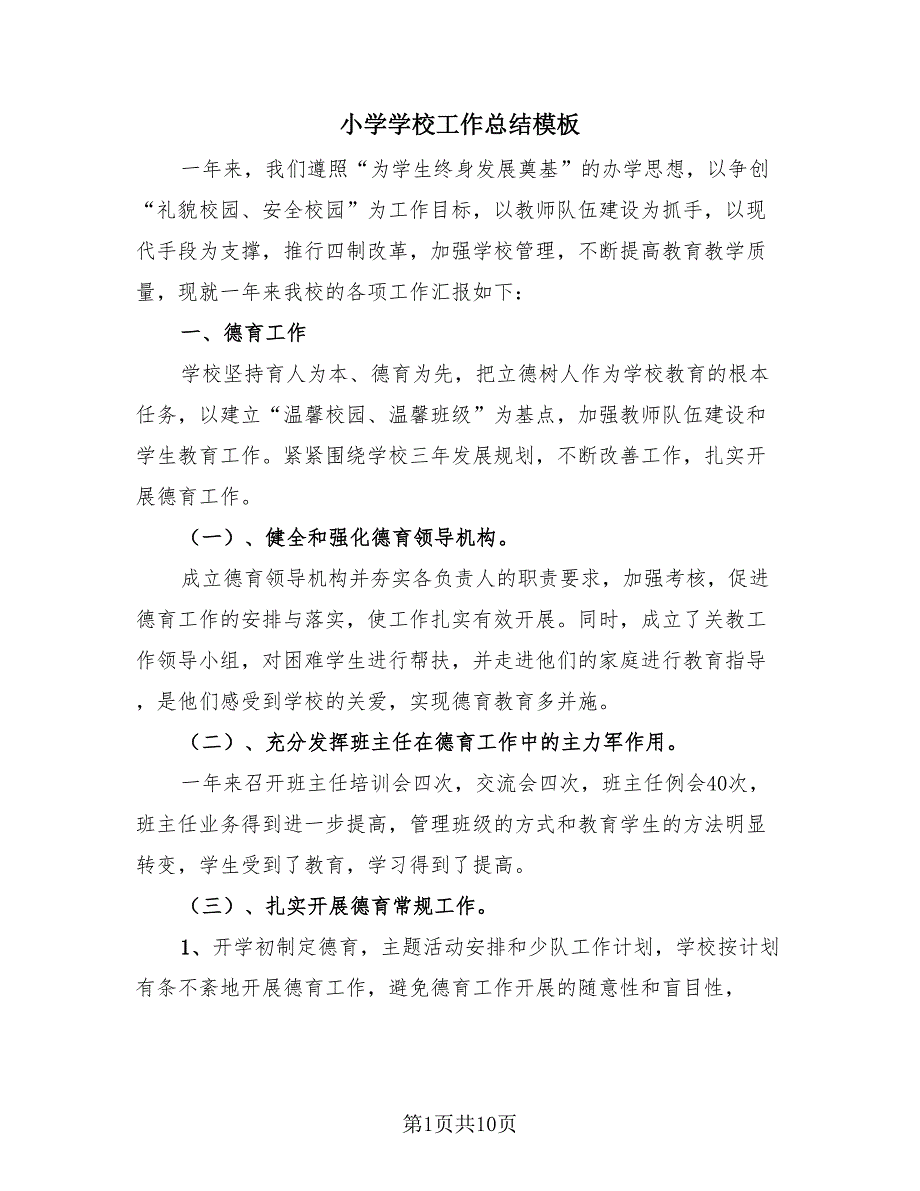 小学学校工作总结模板
一年来，我们遵照“为学生终身发展奠基”的办学思想，以争创
“礼貌校园、安全校园”为工作目标，以教师队伍建设为抓手，以现
代手段为支撑，推行四制改革，加强学校管理，不断提高教育教学质
量，现就一年来我校的各项工作汇报如下：
一、德育工作
学校坚持育人为本、德育为先，把立德树人作为学校教育的根本
任务，以建立“温馨校园、温馨班级”为基点，加强教师队伍建设和
学生教育工作。紧紧围绕学校三年发展规划，不断改善工作，扎实开
展德育工作。
（一）、健全和强化德育领导机构。
成立德育领导机构并夯实各负责人的职责要求，加强考核，促进
德育工作的安排与落实，使工作扎实有效开展。同时，成立了关教工
作领导小组，对困难学生进行帮扶，并走进他们的家庭进行教育指导
，是他们感受到学校的关爱，实现德育教育多并施。
（二）、充分发挥班主任在德育工作中的主力军作用。
一年来召开班主任培训会四次，交流会四次，班主任例会40次，
班主任业务得到进一步提高，管理班级的方式和教育学生的方法明显
转变，学生受到了教育，学习得到了提高。
（三）、扎实开展德育常规工作。
1、开学初制定德育，主题活动安排和少队工作计划，学校按计划
有条不紊地开展德育工作，避免德育工作开展的随意性和盲目性，
第1页共10页